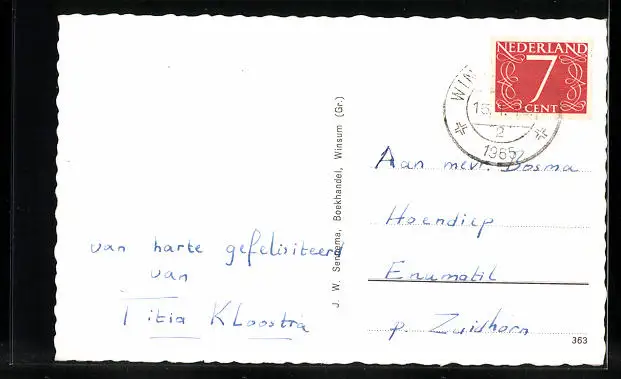 van harte gefelisiteerd
van
Titia Kloostra
J. W. Boekhandel, Winsum (Gr.)
NEDERLAND
7
CENT
WIN
15
2
1965
Aan mevr. Bosma
Hoendiep
Enumatil
p. Zuidhorn
363